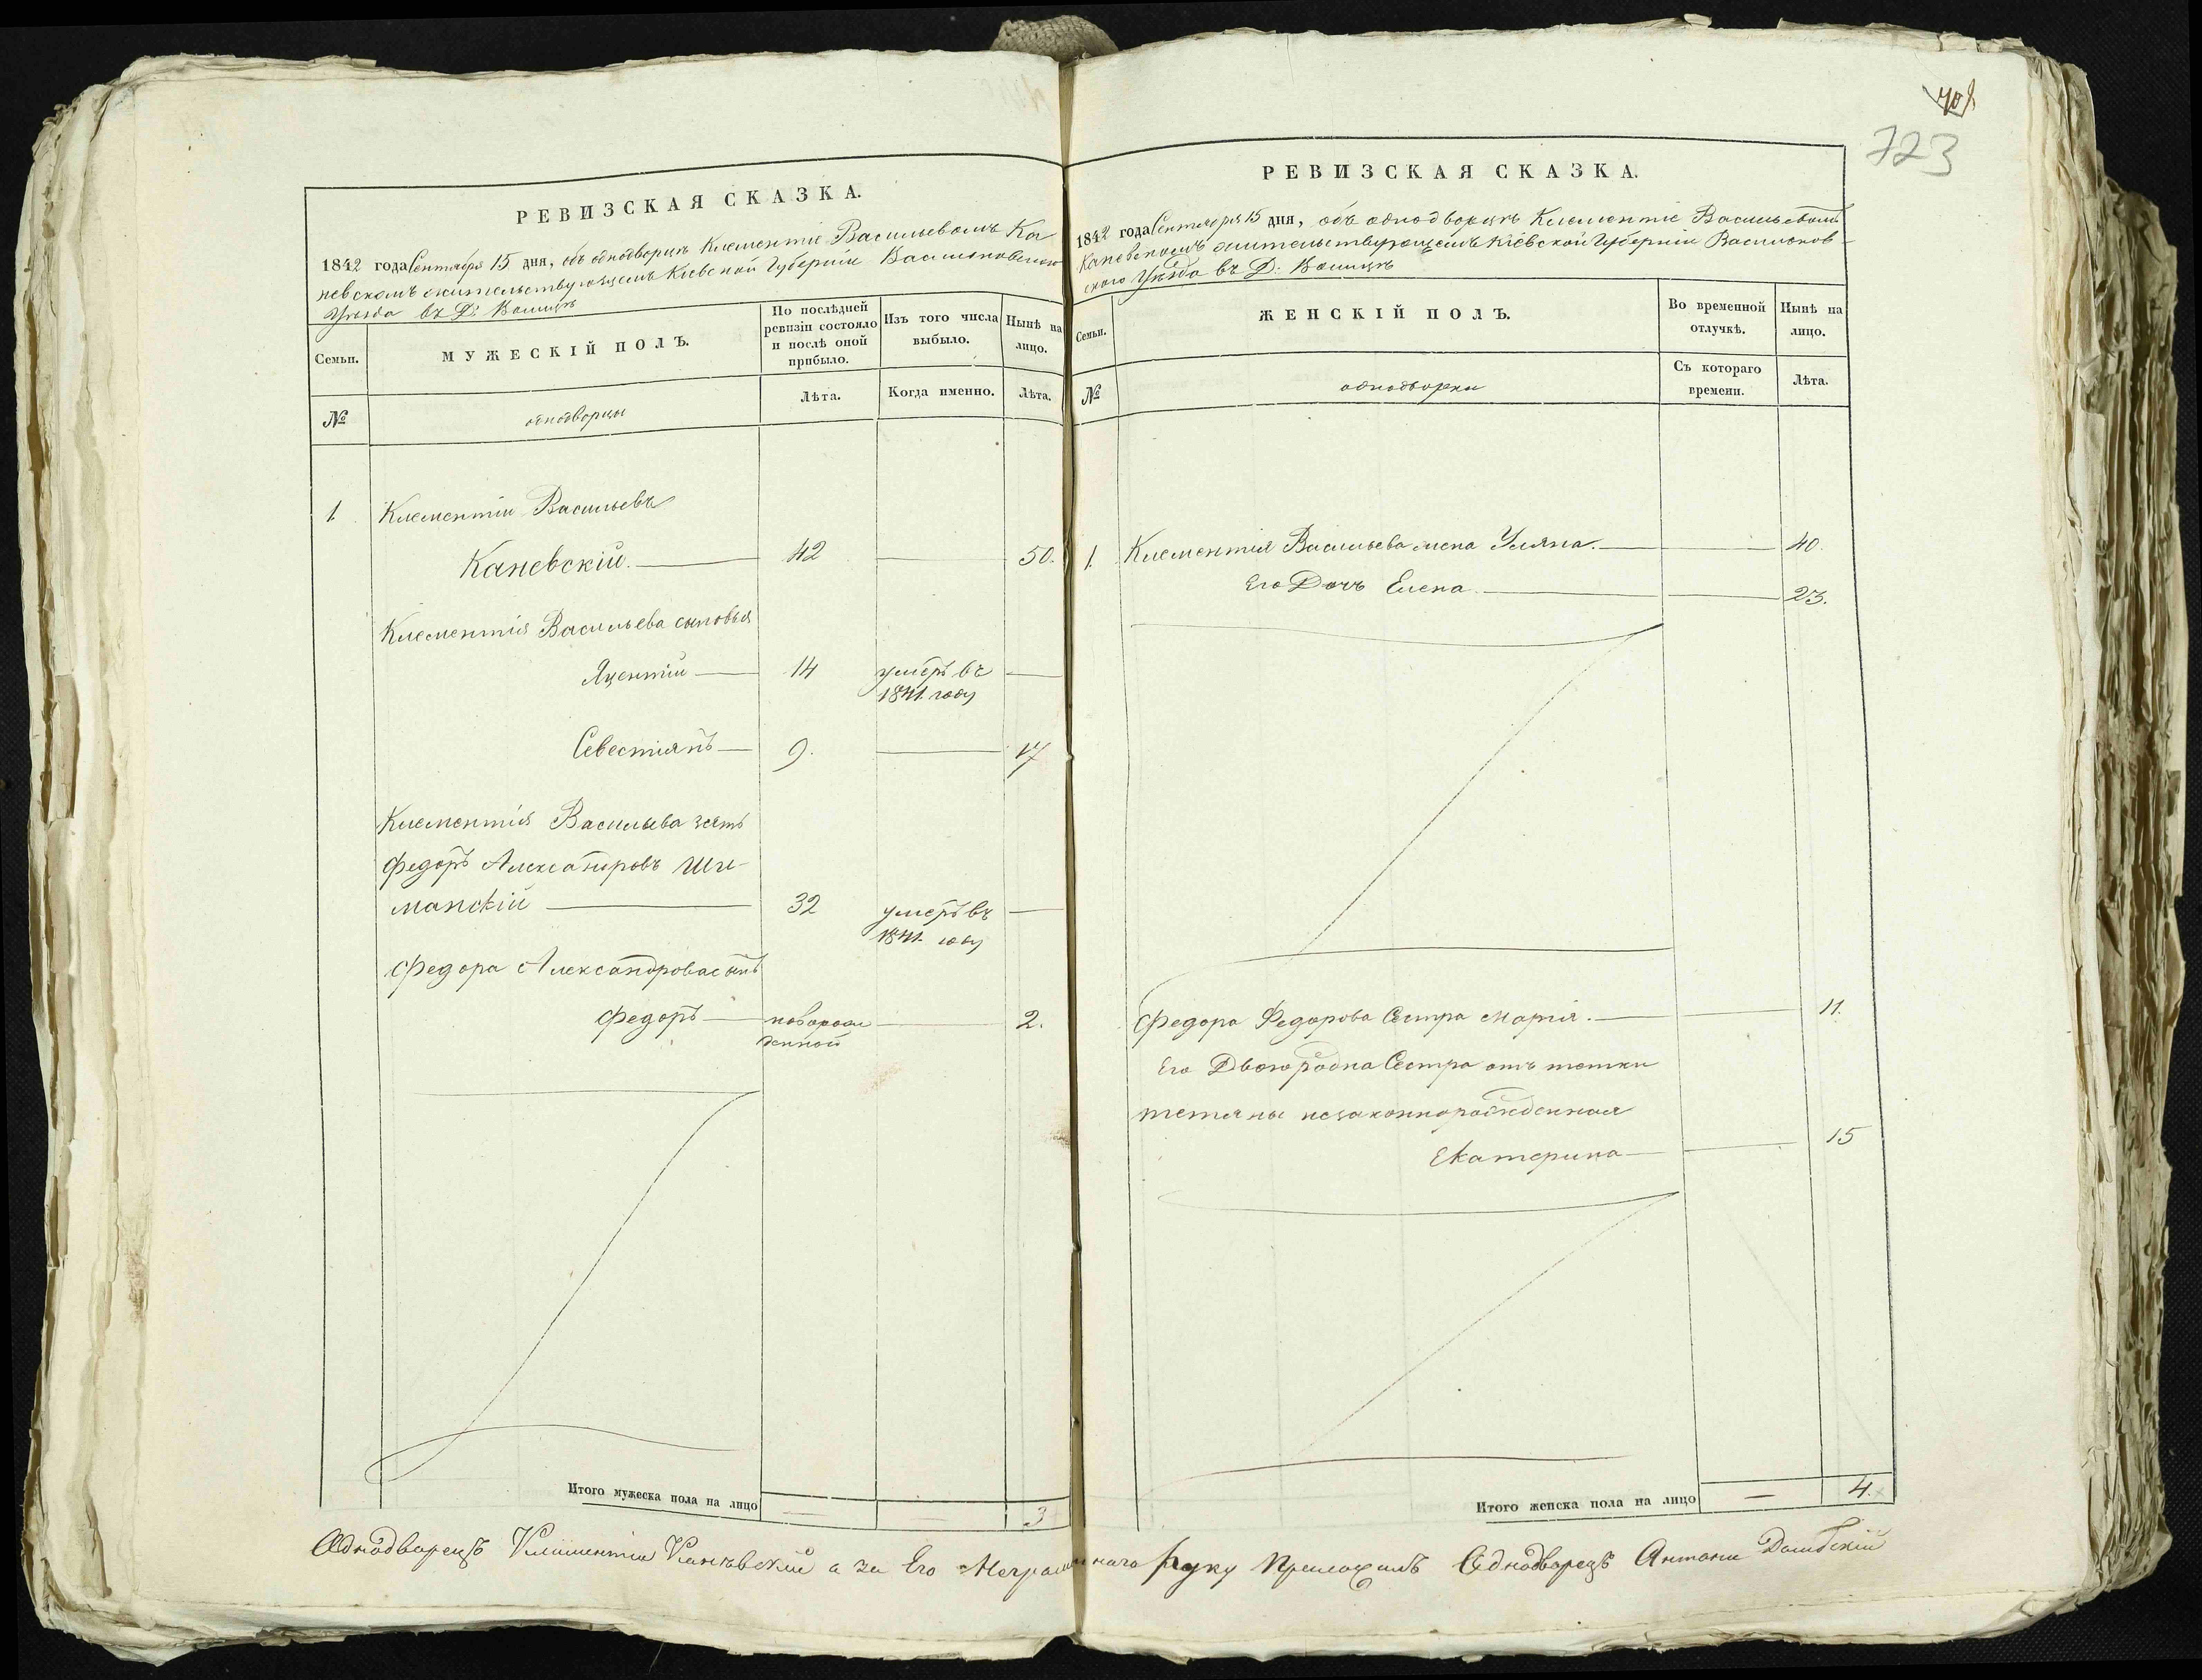 РЕВИЗСКАЯ СКАЗКА.
1842 года Сентября 15 дня, объ однодворцѣ Клементіе Васильевомъ Ка
невскомъ жительствующемъ Кіевской Губерніи Васильковского
Уѣзда въ Д:
Семьи.
МУЖЕСКІЙ ПОЛЪ.
По послѣдней ревизіи состояло и послѣ оной прибыло.
Изъ того числа выбыло.
Нынѣ на лицо.
№
однодворцы
Лѣта.
Когда именно.
Лѣта.
1. Клементіи Васильевъ
Каневскій. 42 50.
Клементія Васильева сыновья
Яцентіи 14 умеръ въ
1841 году
Севестіянъ 9. 17
Клементія Васильева зять
Федоръ Александровъ Ши-
манскій 32 умеръ въ
1841 году
Федора Александрова сынъ
Федоръ новорож 2.
денной
Итого мужеска пола на лицо 3
70
723
РЕВИЗСКАЯ СКАЗКА.
1842 года Сентября 15 дня, объ однодворцѣ Клементіе Васильевомъ
Каневскомъ жительствующемъ Кіевской Губерніи Васильков-
ского Уѣзда въ Д:
Семьи.
ЖЕНСКІЙ ПОЛЪ.
Во временной отлучкѣ.
Нынѣ на лицо.
№
однодворки
Съ котораго времени.
Лѣта.
1. Клементія Васильева жена Уляна. 40.
Его Дочь Елена 23.
Федора Федорова Сестра Марія. 11.
Его Двоюродна Сестра отъ тетки
тетяны незаконнорожденная
Екатерина 15
Итого женска пола на лицо 4.
Однодворецъ Клішентіи Канѣвскій а за Его Неграмотнаго руку Приложилъ Однодворецъ Антони